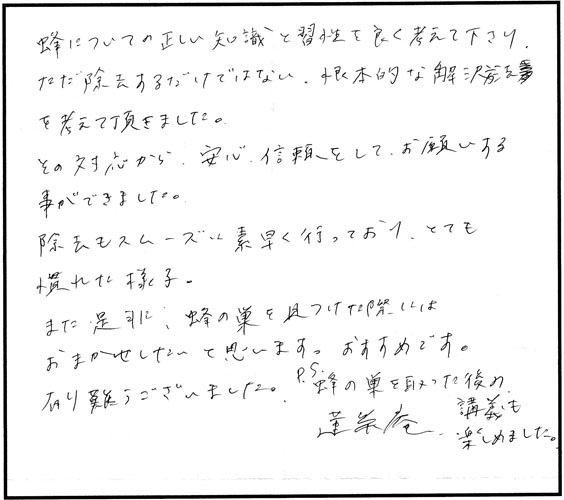 蜂についての正しい知識と習性を良く考えて下さり、
ただ除去するだけではない、根本的な解決方法
を考えて頂きました。
その対応から、安心、信頼をして、お願いする
事ができました。
除去もスムーズに素早く行っており、とても
慣れた様子。
また是非、蜂の巣を見つけた際には
おまかせしたいと思います。おすすめです。
有り難うございました。
P.S. 蜂の巣を取った後の
講義も
楽しめました。